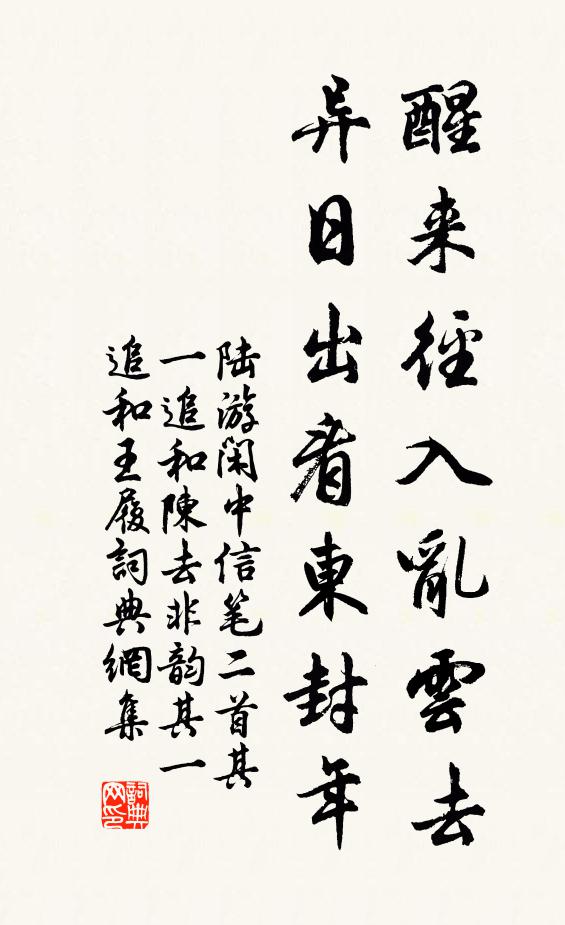 醒来徑入亂雲去
异日出看東封年
陆游闲中信笔二首其
一追和陳去非韵其一
追和王履詞典網集
詞典网印